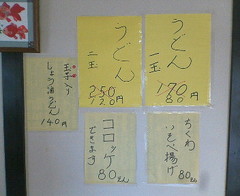 うどん
一玉
170
80円
うどん
二玉
250
120円
ちくわ
いそべ揚げ
80えん
コロッケ
できます
80えん
玉子入り
しょう油うどん
140円